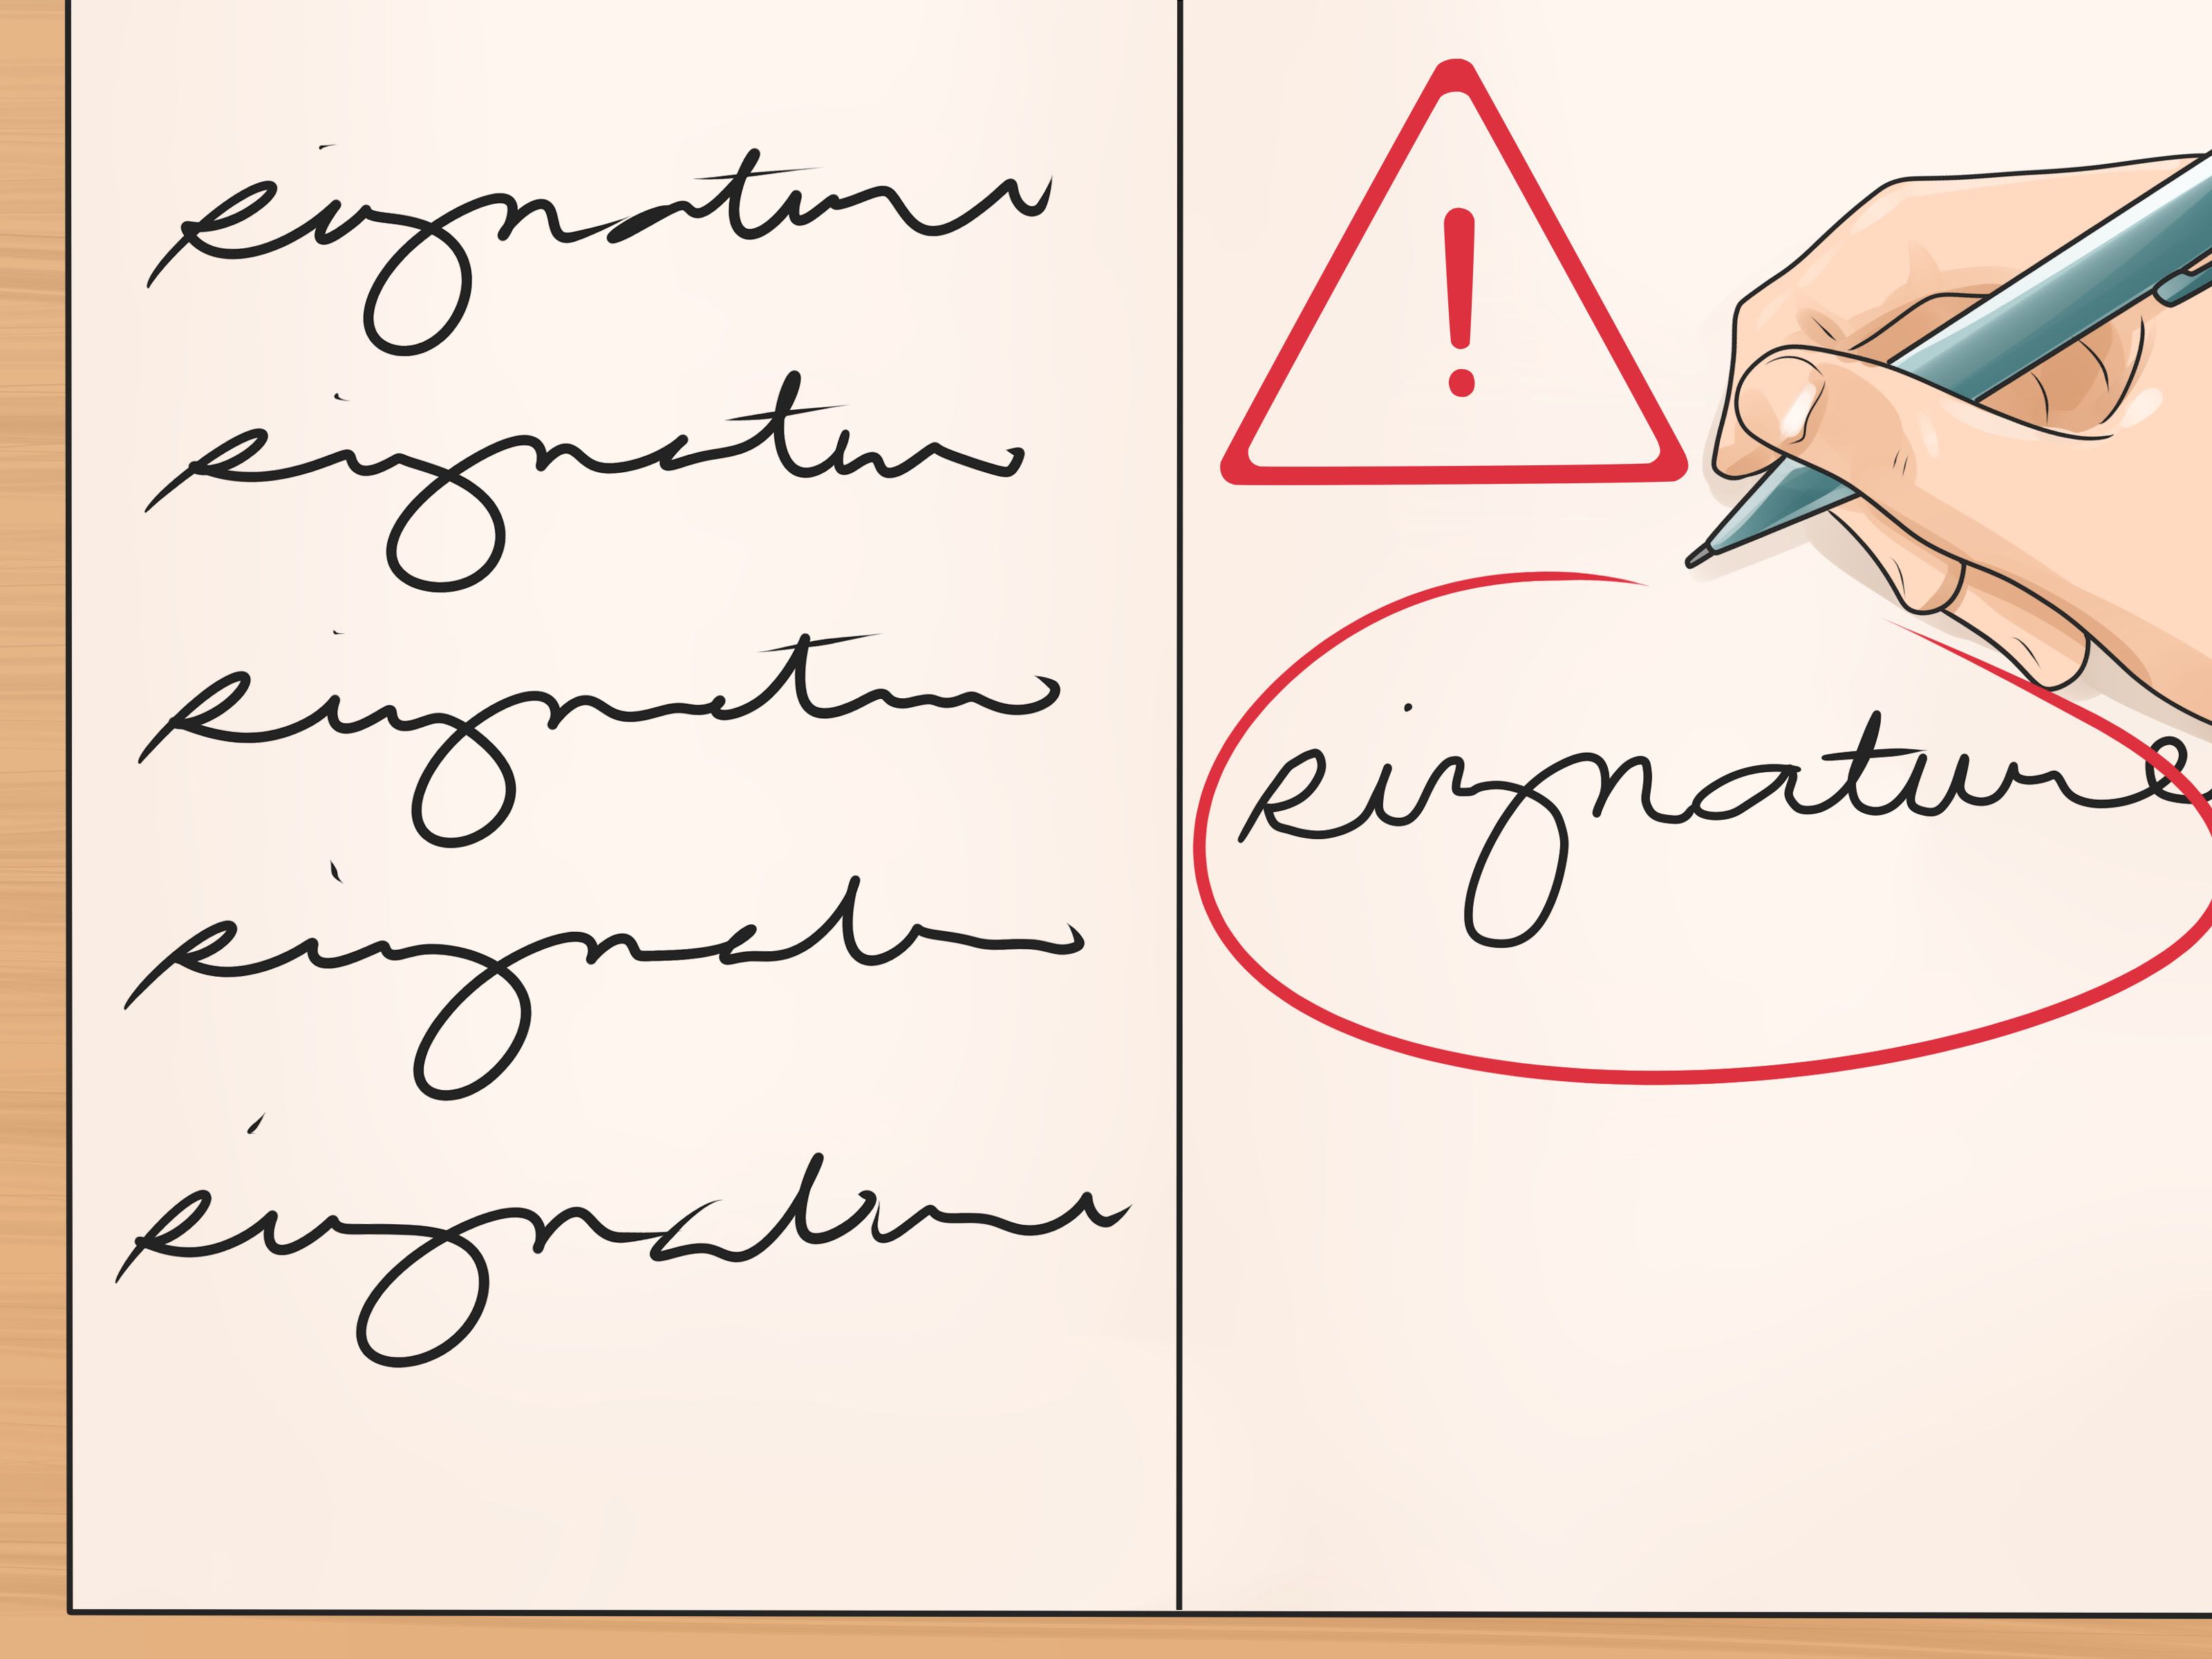 signature
signature
signature
signature
signature
!
signature